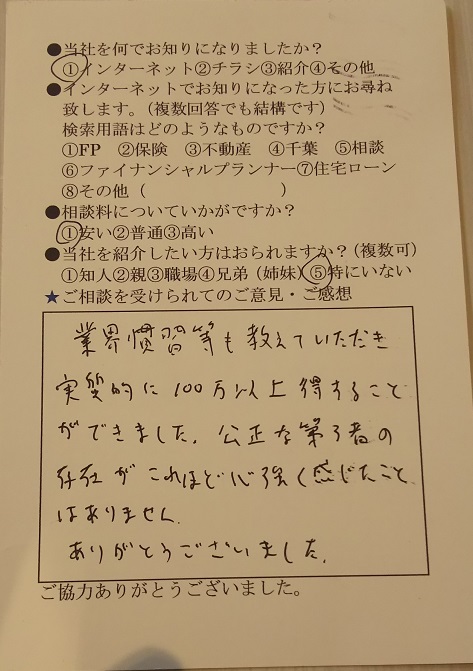 ●当社を何でお知りになりましたか？
①インターネット②チラシ③紹介④その他
●インターネットでお知りになった方にお尋ね
致します。（複数回答でも結構です）
検索用語はどのようなものですか？
①FP ②保険 ③不動産 ④千葉 ⑤相談
⑥ファイナンシャルプランナー⑦住宅ローン
⑧その他（ ）
●相談料についていかがですか？
①安い②普通③高い
●当社を紹介したい方はおられますか？（複数可）
①知人②親③職場④兄弟（姉妹）⑤特にいない
★ご相談を受けられてのご意見・ご感想
業界慣習等も教えていただき
実質的に100万以上得すること
ができました。公正な第3者の
存在がこれほど心強く感じたこと
はありません。
ありがとうございました。
ご協力ありがとうございました。